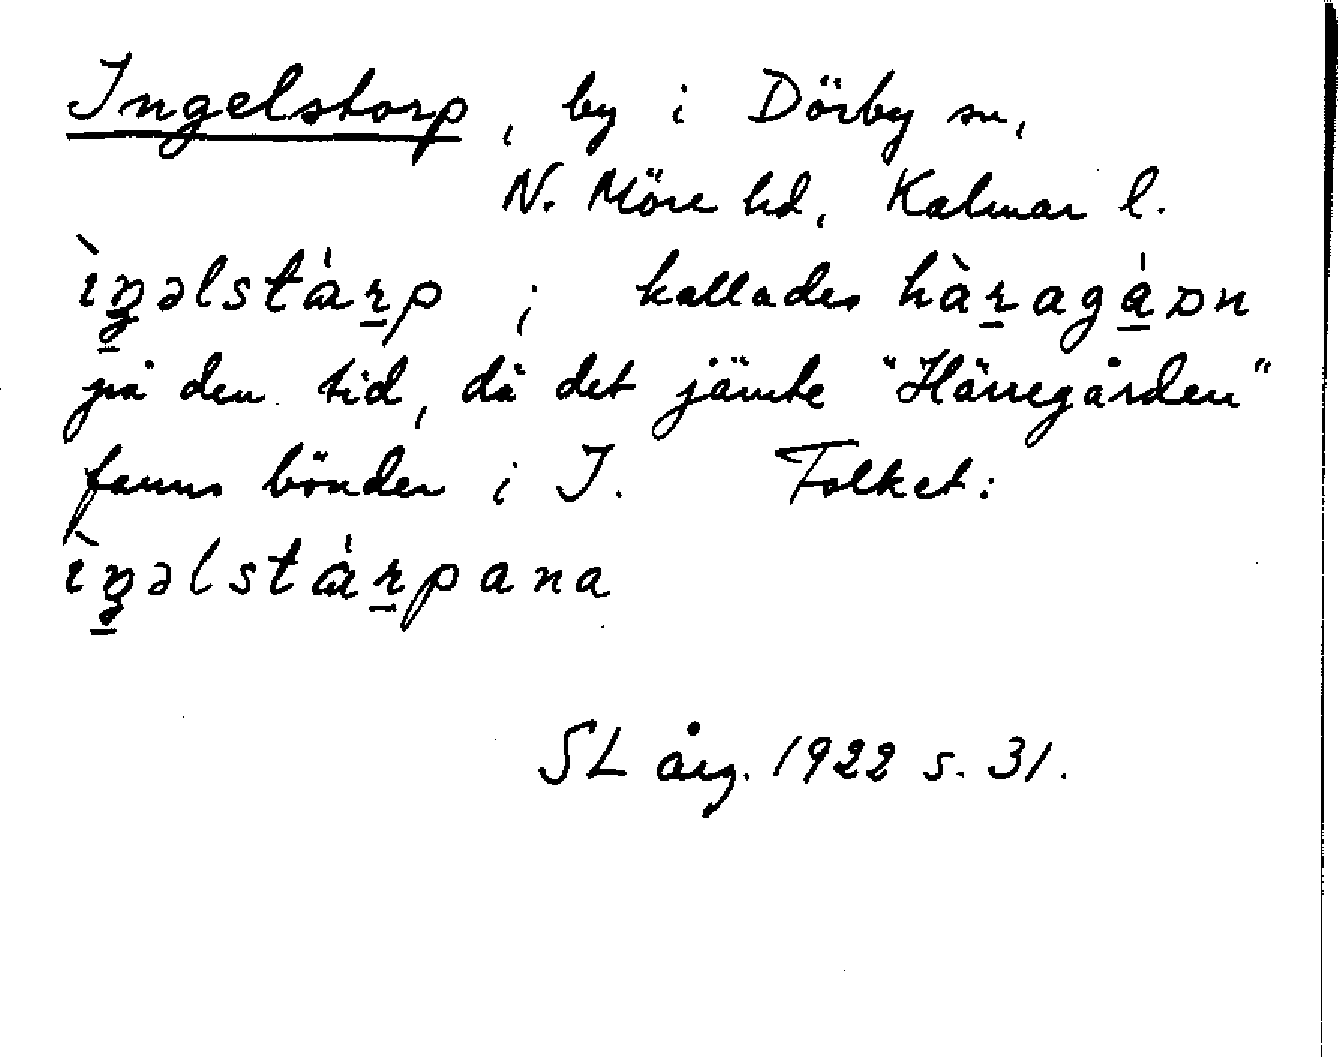 Ingelstorp, by i Dörby sn,
N. Möre hd, Kalmar l.
ìŋəlstȧ́r̲p; kallades hàr̲agá̲ɒn
på den tid, då det jämte "Härregården"
fanns bönder i I. Folket:
ìŋəlstȧ́r̲pana
SL årg. 1922 s. 31.